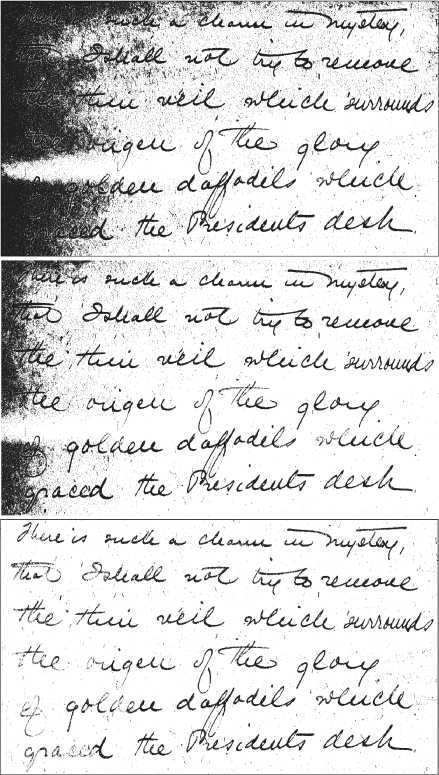 such a charm in mystery,
I shall not try to remove
the thin veil which surrounds
the origin of the glory
golden daffodils which
graced the Presidents desk.
There is such a charm in mystery,
that I shall not try to remove
the thin veil which surrounds
the origin of the glory
of golden daffodils which
graced the Presidents desk.
There is such a charm in mystery,
that I shall not try to remove
the thin veil which surrounds
the origin of the glory
of golden daffodils which
graced the Presidents desk.